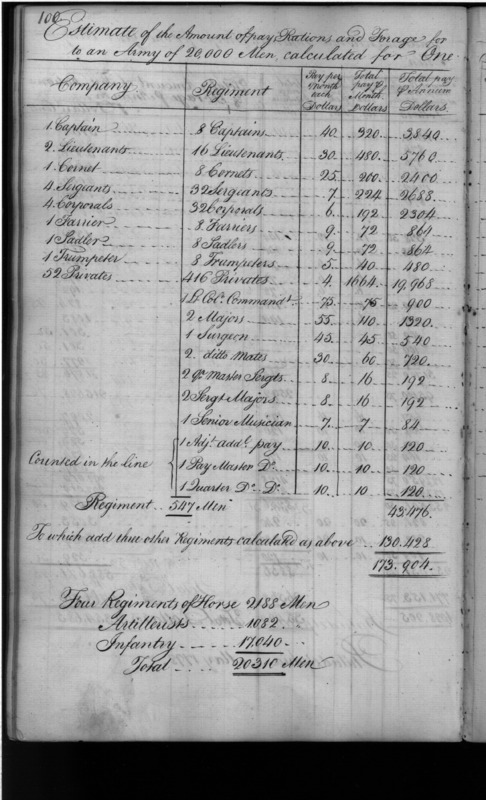 100
Estimate of the Amount of pay, Rations and Forage for
to an Army of 20,000 Men, calculated for One
Company Regiment Pay per month each Dollars Total pay pr Month Dollars Total pay pr Annum Dollars.
1 Captain 8 Captains 40 320 3840
2 Lieutenants 16 Lieutenants 30 480 5760
1 Cornet 8 Cornets 25 200 2400
4 Sergiants 32 Sergiants 7 224 2688
4 Corporals 32 Corporals 6 192 2304
1 Farrier 8 Farriers 9 72 864
1 Sadler 8 Sadlers 9 72 864
1 Trumpeter 8 Trumpeters 5 40 480
52 Privates 416 Privates 4 1664 19,968
1 Lt Col. Commandt 75 75 900
2 Majors 55 110 1320
1 Surgeon 45 45 540
2 ditto Mates 30 60 720
2 Qr Master Sergts 8 16 192
2 Sergt Majors 8 16 192
1 Senior Musician 7 7 84
1 Adjt addl. pay 10 10 120
Counted in the line 1 Pay Master Do. 10 10 120
1 Quarter Do. Do. 10 10 120
Regiment 547 Men 43,476.
To which add three other Regiments calculated as above 130.428
173.904.
Four Regiments of Horse 2188 Men
Artillerists 1082
Infantry 17,040
Total 20310 Men